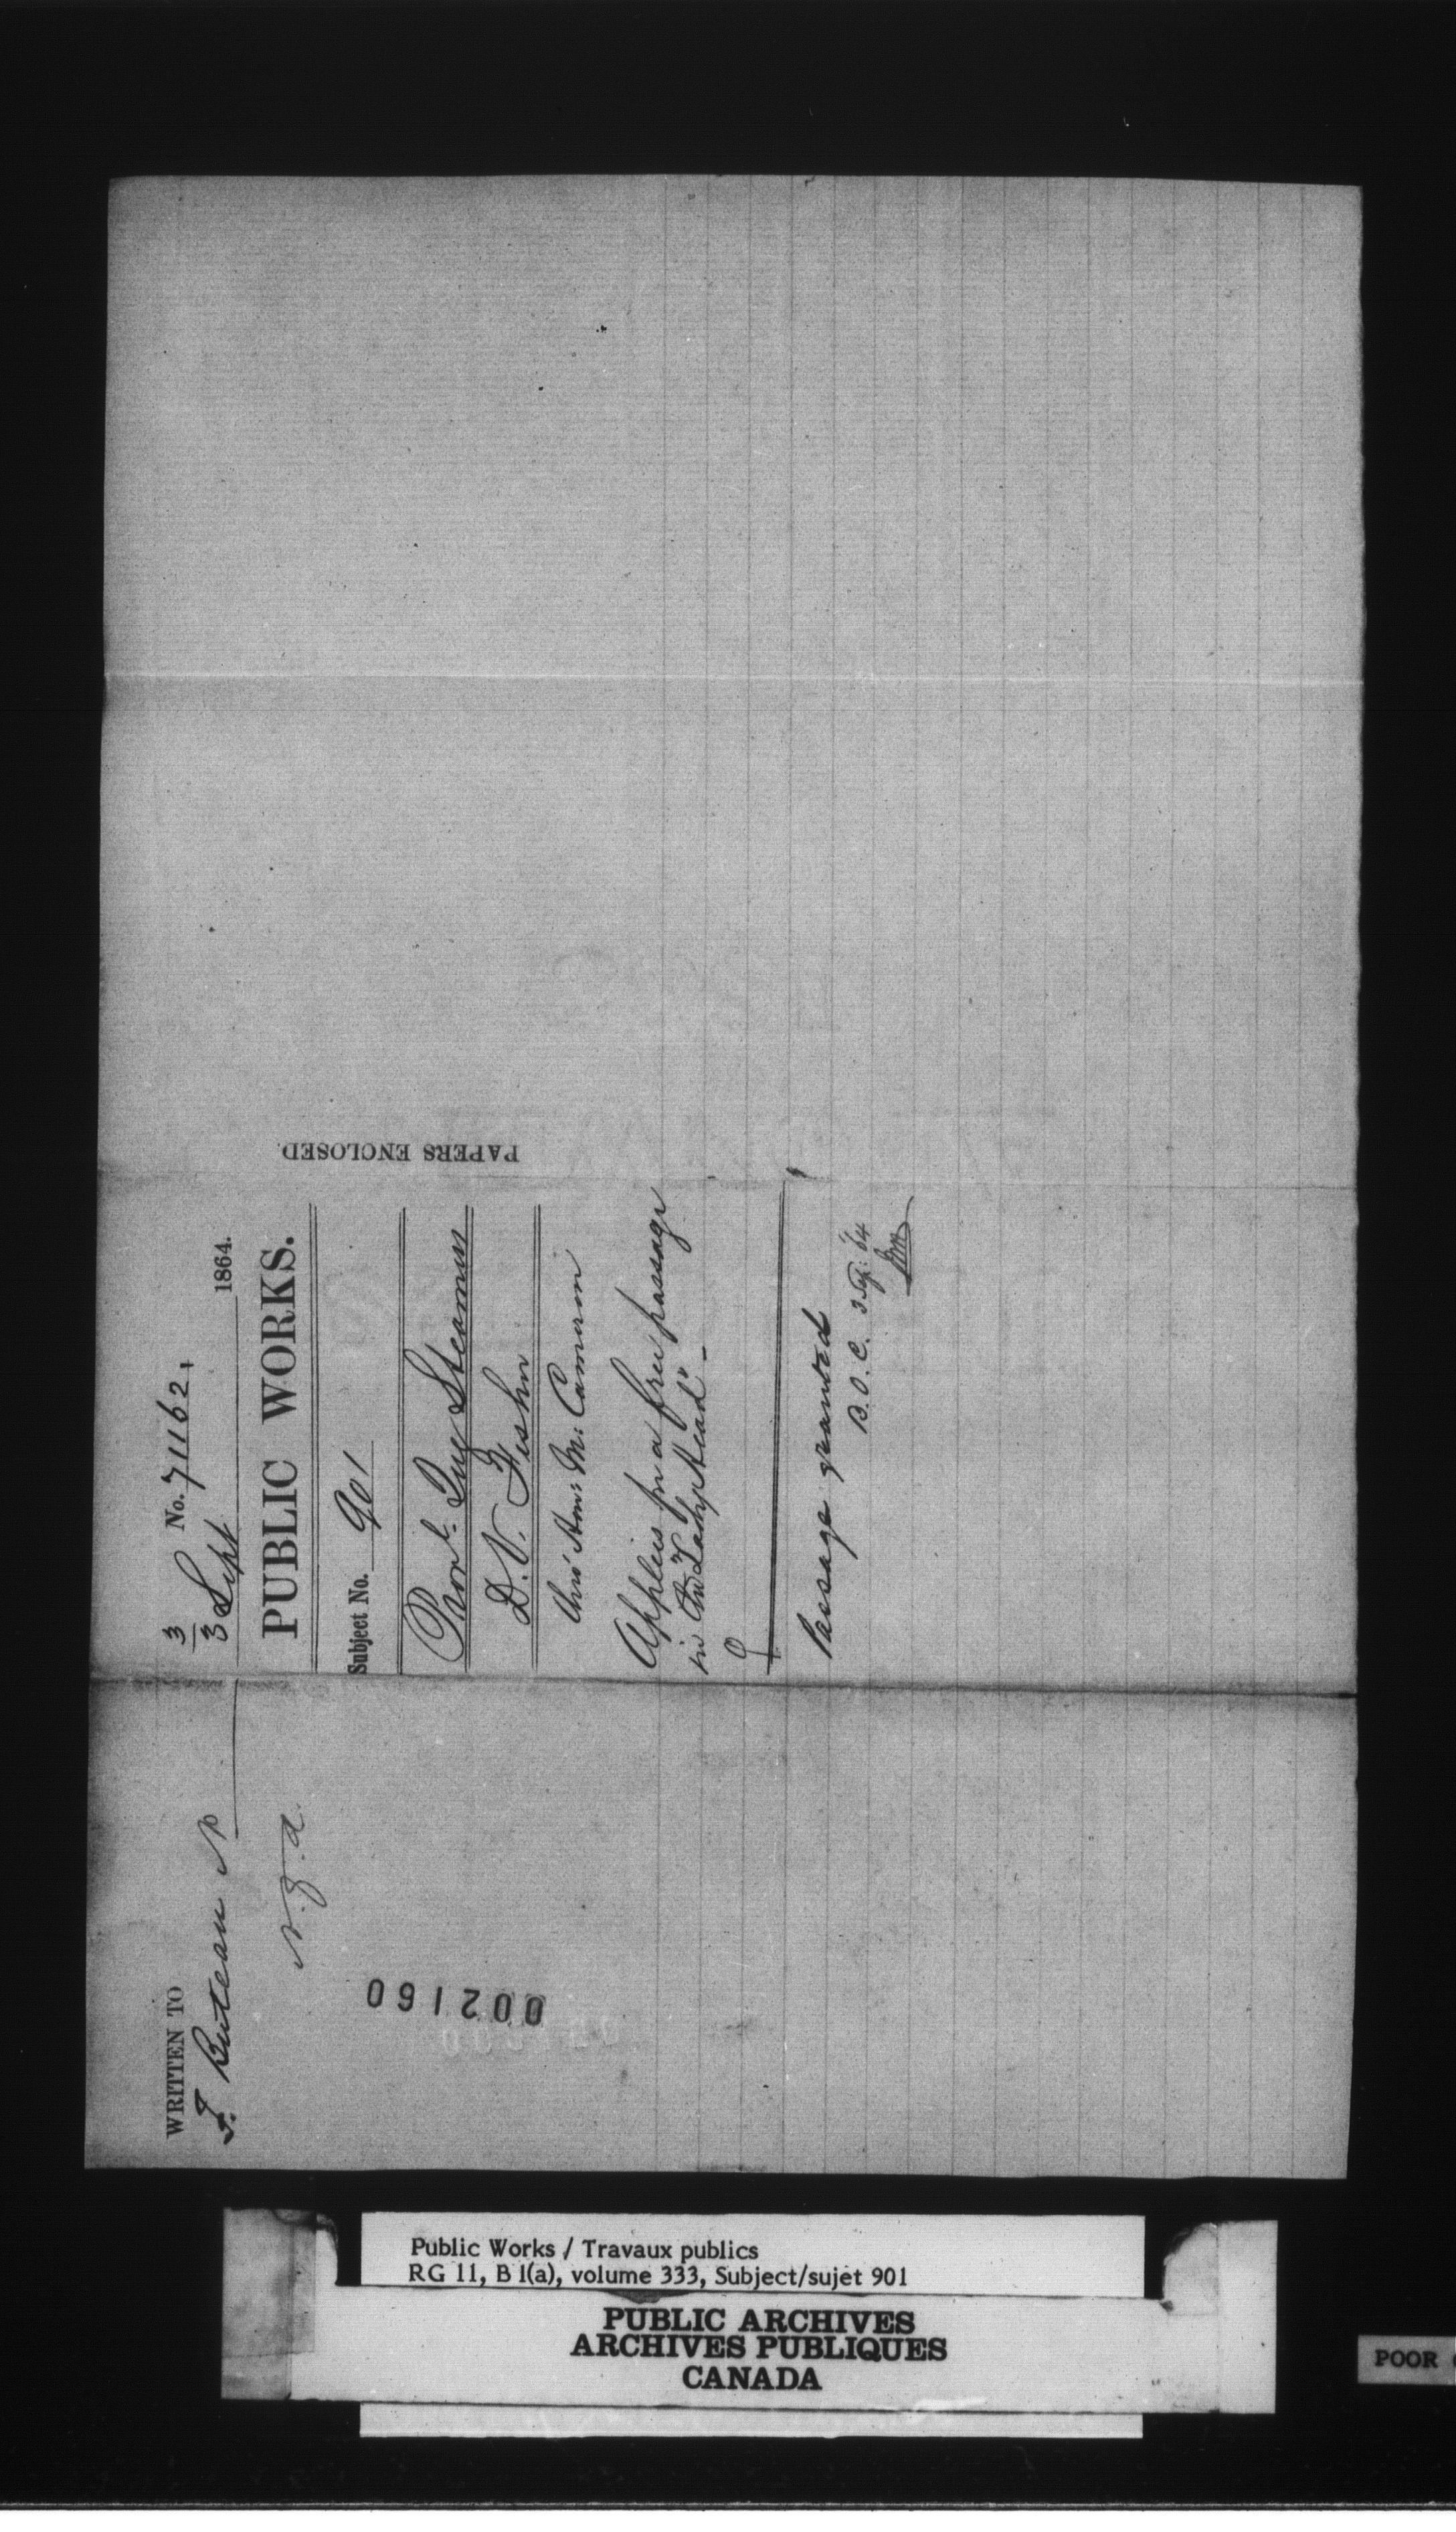 WRITTEN TO
F. Buteau
002160
3/3 No. 71162
3 Sept 1864.
PUBLIC WORKS.
Subject No. 901
Provl. Tug Steamers
D. V. Fisher
thro' Hon: M: Cameron
Applies for a free passage
in the "Lady Head" -
Passage granted
B. O. C. 3 Sep: 64
PAPERS ENCLOSED.
Public Works / Travaux publics
RG 11, B 1(a), volume 333, Subject/sujet 901
PUBLIC ARCHIVES
ARCHIVES PUBLIQUES
CANADA
POOR